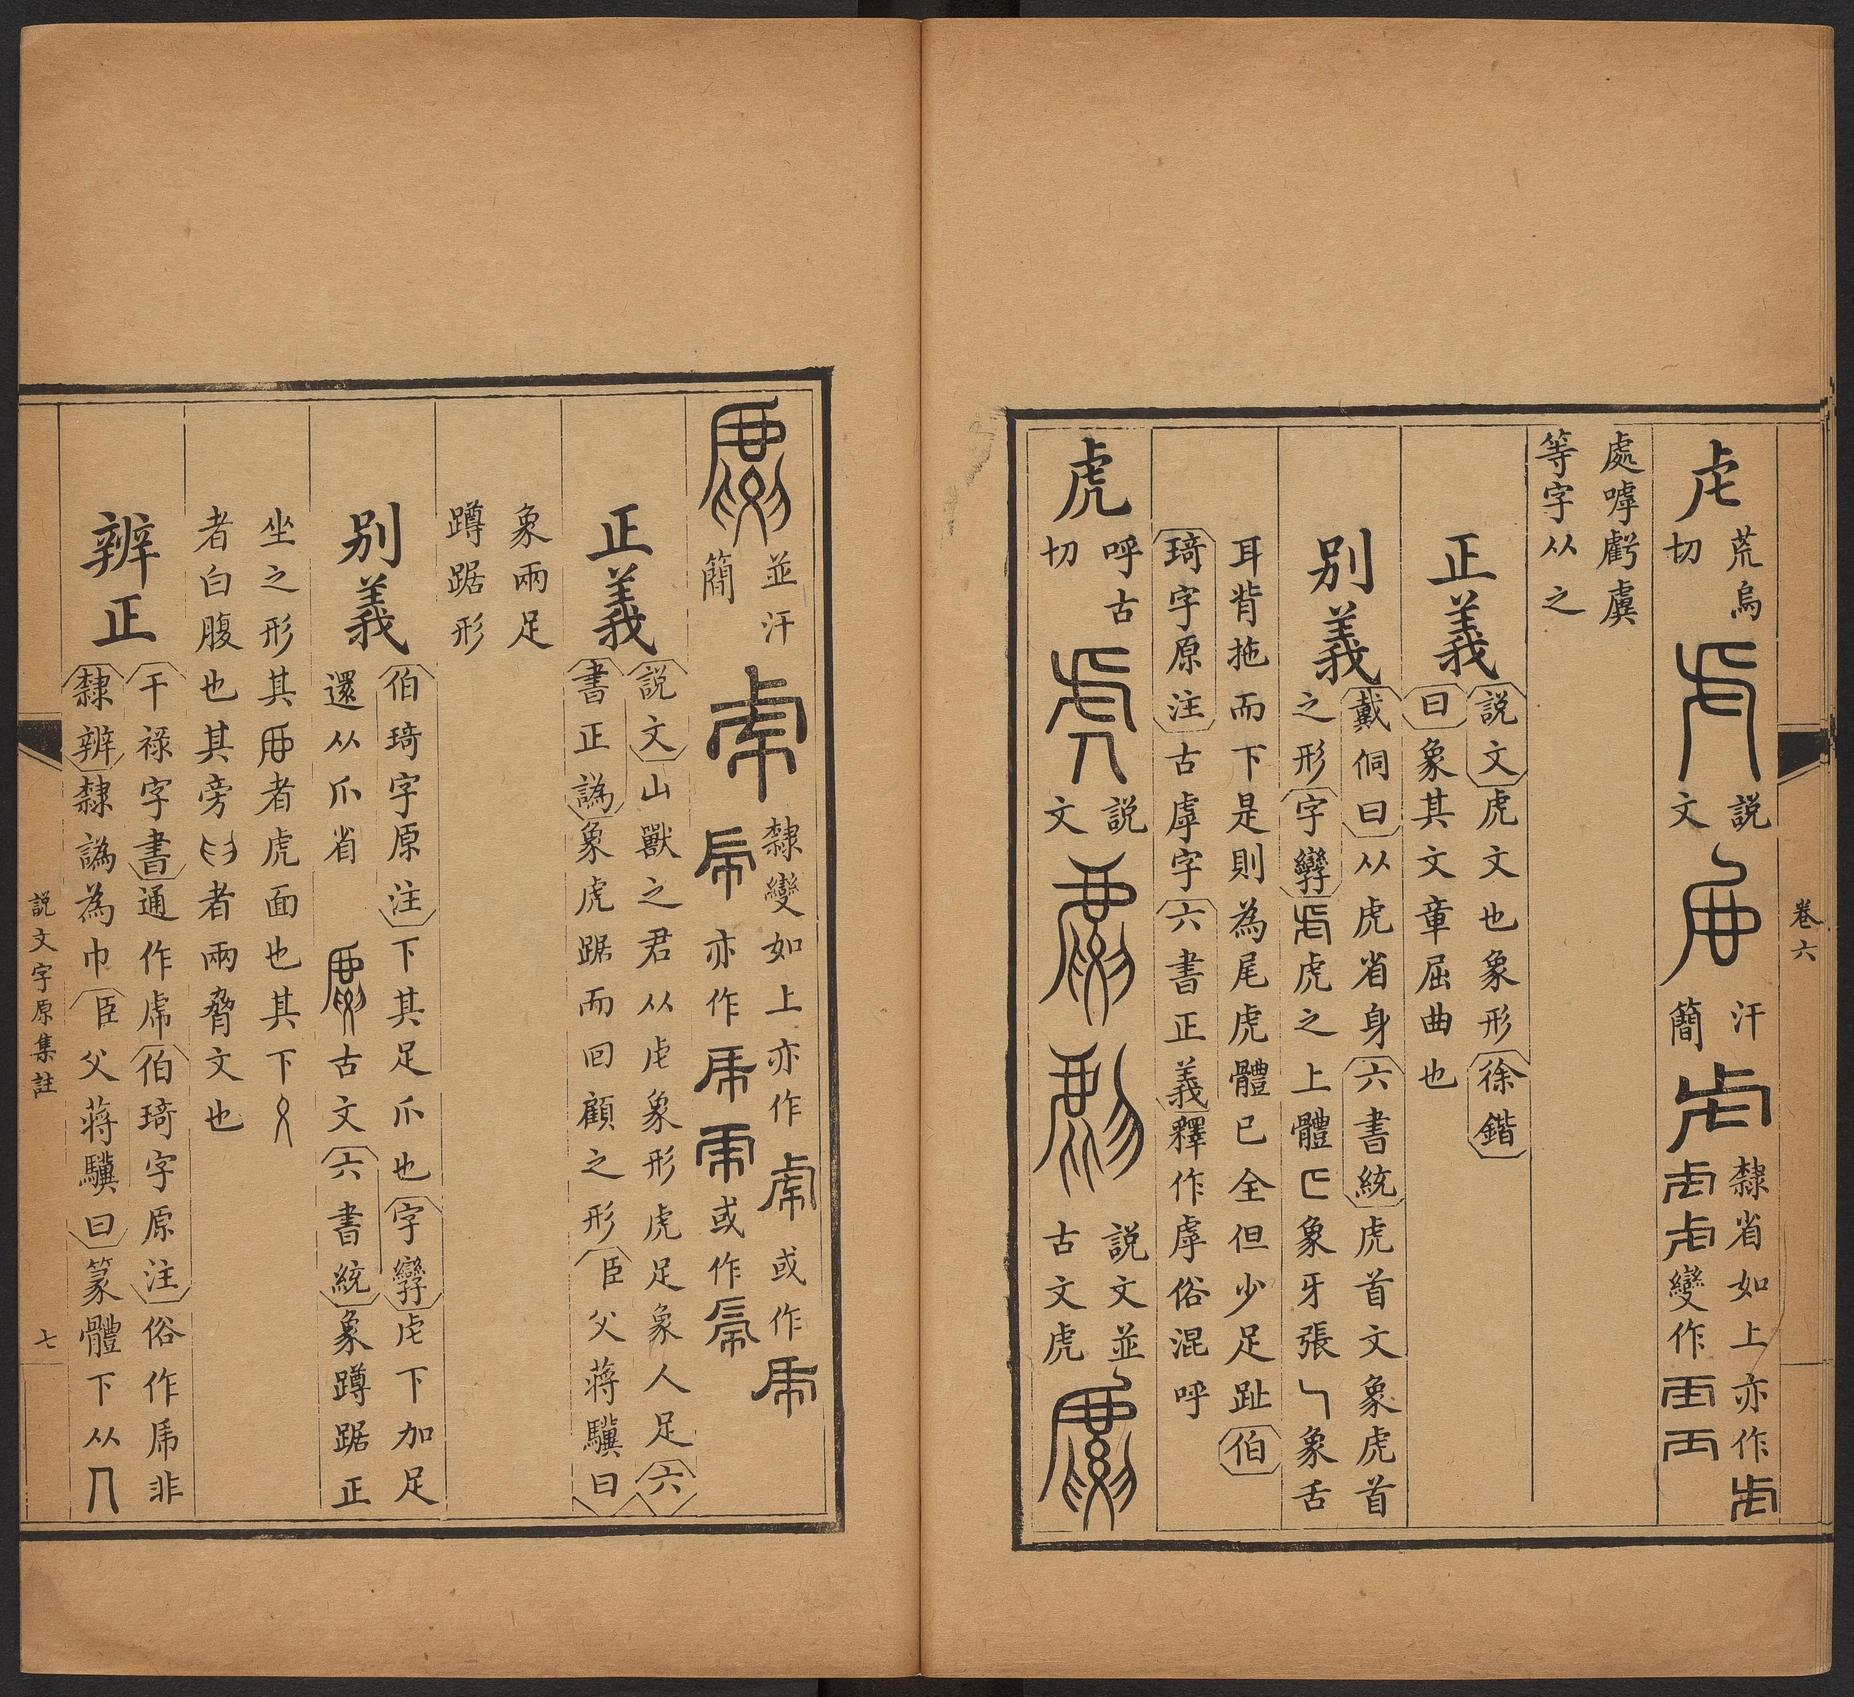 卷六
虍 荒烏切 說文 汗簡 隸省如上亦作
變作
處嘑虧虞
等字从之
正義 說文虎文也象形徐鍇
曰象其文章屈曲也
別義 戴侗曰从虎省身六書統虎首文象虎首
之形字孿虎之上體象牙張象舌
耳背拖而下是則為尾虎體已全但少足趾伯
琦字原注古虖字六書正義釋作虖俗混呼
虎 呼古切 說文 說文並古文虎
並汗簡 隸變如上亦作 或作
亦作 或作
正義 說文山獸之君从虍象形虎足象人足六
書正譌象虎踞而回顧之形臣父蔣驥曰
象兩足
蹲踞形
別義 伯琦字原注下其足爪也字孿虍下加足
還从爪省 古文六書統象蹲踞正
坐之形其 者虎面也其下
者白腹也其旁 者兩脅文也
辨正 干祿字書通作 伯琦字原注俗作 非
隸辨隸譌為巾臣父蔣驥曰篆體下从
說文字原集註
七